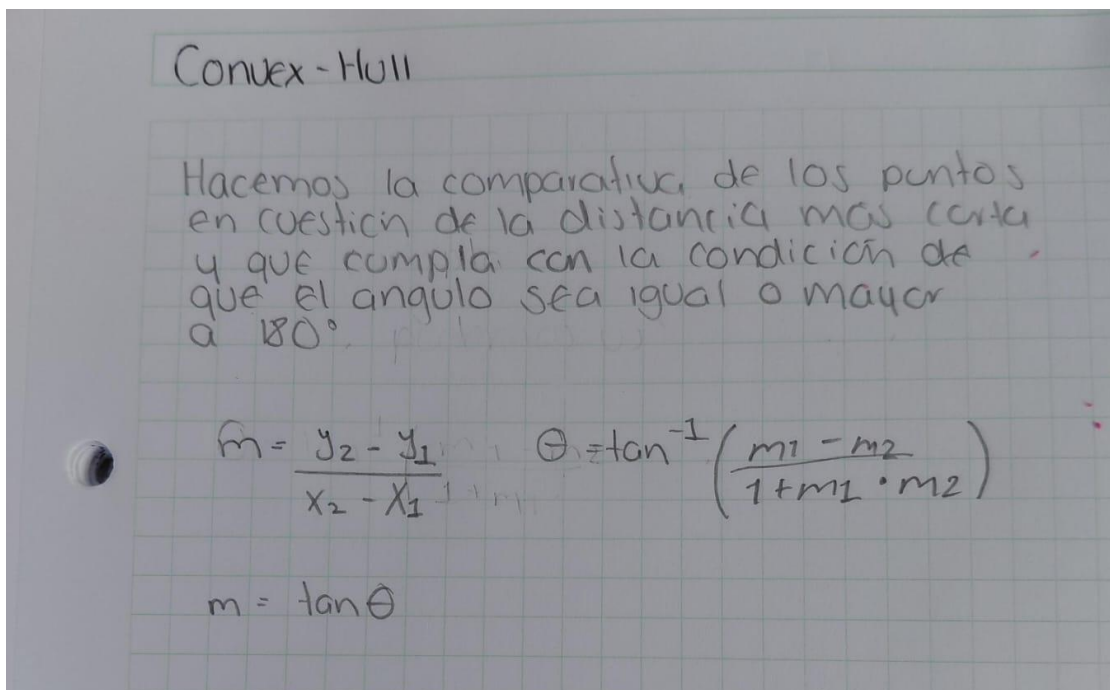 Convex-Hull
Hacemos la comparativa de los puntos
en cuestion de la distancia mas corta
y que cumpla con la condición de
que el angulo sea igual o mayor
a 180°
m = y2 - y1 / x2 - x1 θ = tan^-1 ( m1 - m2 / 1 + m1 · m2 )
m = tan θ